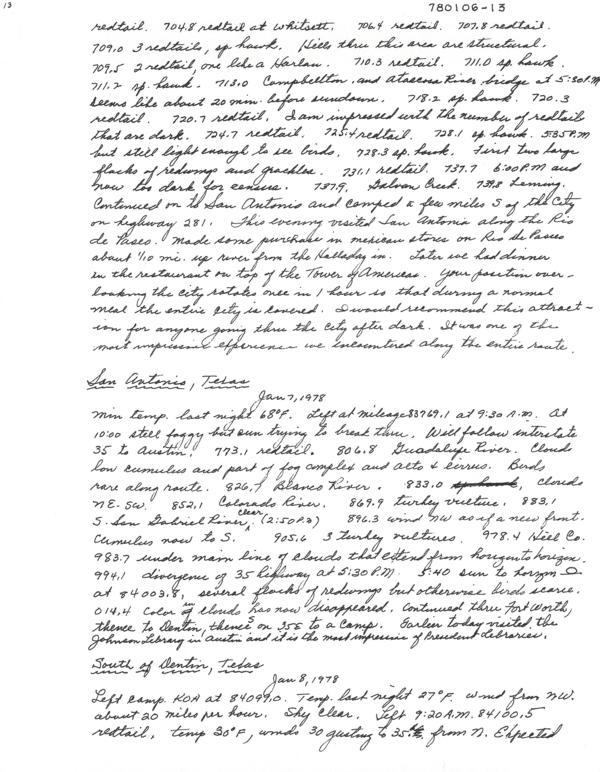 13
780106-13
redtail. 704.8 redtail at Whitsett. 706.4 redtail. 707.8 redtail.
709.0 3 redtails, sp hawk. Hills thru this area are structural.
709.5 2 redtail, one like a Harlan. 710.3 redtail. 711.0 sp. hawk.
711.2 sp. hawk. 713.0 Campbellton, and Atascosa River bridge at 5:30 P.M
seems like about 20 min. before sundown. 718.2 sp. hawk. 720.3
redtail. 720.7 redtail. I am impressed with the number of redtails
that are dark. 724.7 redtail. 725.4 redtail. 728.1 sp. hawk. 5:35 P.M
but still light enough to see birds. 728.3 sp. hawk. First two large
flocks of redwings and grackles. 731.1 redtail. 737.7 6:00 P.M and
now too dark for census. 737.9, Galvan Creek. 739.8 Leming.
Continued on to San Antonio and camped a few miles S of the City
on highway 281. This evening visited San Antonio along the Rio
de Paseo. Made some purchase in mexican stores on Rio de Paseo
about 1/10 mi. up river from the Holladay in. Later we had dinner
in the restaurant on top of the Tower of Americas. Your position over-
looking the city rotates once in 1 hour so that during a normal
meal the entire city is covered. I would recommend this attract-
ion for anyone going thru the city after dark. It was one of the
most impressive experience we encountered along the entire route.
San Antonio, Texas
Jan 7, 1978
Min temp. last night 68°F. Left at mileage 83769.1 at 9:30 A.M. At
10:00 still foggy but sun trying to break thru. Will follow interstate
35 to Austin. 773.1 redtail. 806.8 Guadalupe River. Clouds
low cumulus and part of fog complex and alto & cirrus. Birds
rare along route. 826.7 Blanco River. 833.0 sp hawk, clouds
NE-SW. 852.1 Colorado River. 869.9 turkey vulture. 883.1
S. San Gabriel River, clear (2:50 P.M) 896.3 wind NW as if a new front.
Cumulus now to S. 905.6 3 turkey vultures. 978.4 Hill Co.
983.7 under main line of clouds that extend from horizon to horizon.
994.1 divergence of 35 highway at 5:30 P.M. 5:40 sun to horizon
at 84003.8, several flocks of redwings but otherwise birds scarce.
014.4 color in clouds has now disappeared. Continued thru Fort Worth,
thence to Dentin, thence S on 35E to a camp. Earlier today visited the
Johnson Library in Austin and it is the most impressive of President Libraries.
South of Dentin, Texas
Jan 8, 1978
Left camp KOA at 84099.0. Temp. last night 27°F. wind from NW.
about 20 miles per hour. Sky clear. Left 9:20 A.M. 84100.5
redtail, temp 30°F, winds 30 gusting to 35 from N. Expected